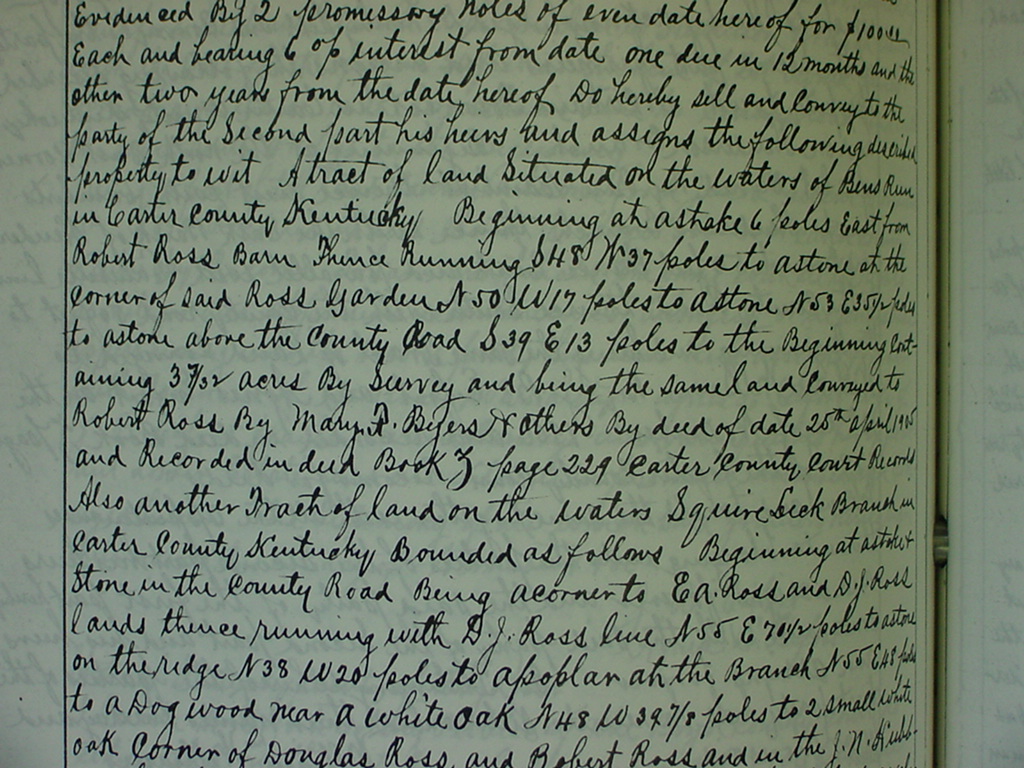 Evidenced By 2 promissory notes of even date hereof for $100.00
Each and bearing 6 o/p interest from date one due in 12 months and the
other two years from the date hereof Do hereby sell and Convey to the
party of the Second part his heirs and assigns the following described
property to wit A tract of land Situated on the waters of Bens Run
in Carter County Kentucky Beginning at a stake 6 poles East from
Robert Ross Barn Thence Running S 48 W 37 poles to a stone at the
Corner of said Ross Garden N 50 W 17 poles to a stone N 53 E 35 1/2 poles
to a stone above the County Road S 39 E 13 poles to the Beginning Cont-
aining 3 7/32 acres By Survey and being the same land Conveyed to
Robert Ross By Mary Byers & others By deed of date 25th april
and Recorded in deed Book Z page 229 Carter County Court Records
Also another Tract of land on the waters Squire Lick Branch in
Carter County Kentucky Bounded as follows Beginning at a stake &
Stone in the County Road Being a corner to E a. Ross and D. J. Ross
lands thence running with D. J. Ross line N 55 E 70 1/2 poles to a stone
on the ridge N 38 W 20 poles to a poplar at the Branch N 55 E 48 poles
to a Dog wood near a white oak N 48 W 39 7/8 poles to 2 small white
oak Corner of Douglas Ross and Robert Ross and in the J. N. Hubb-